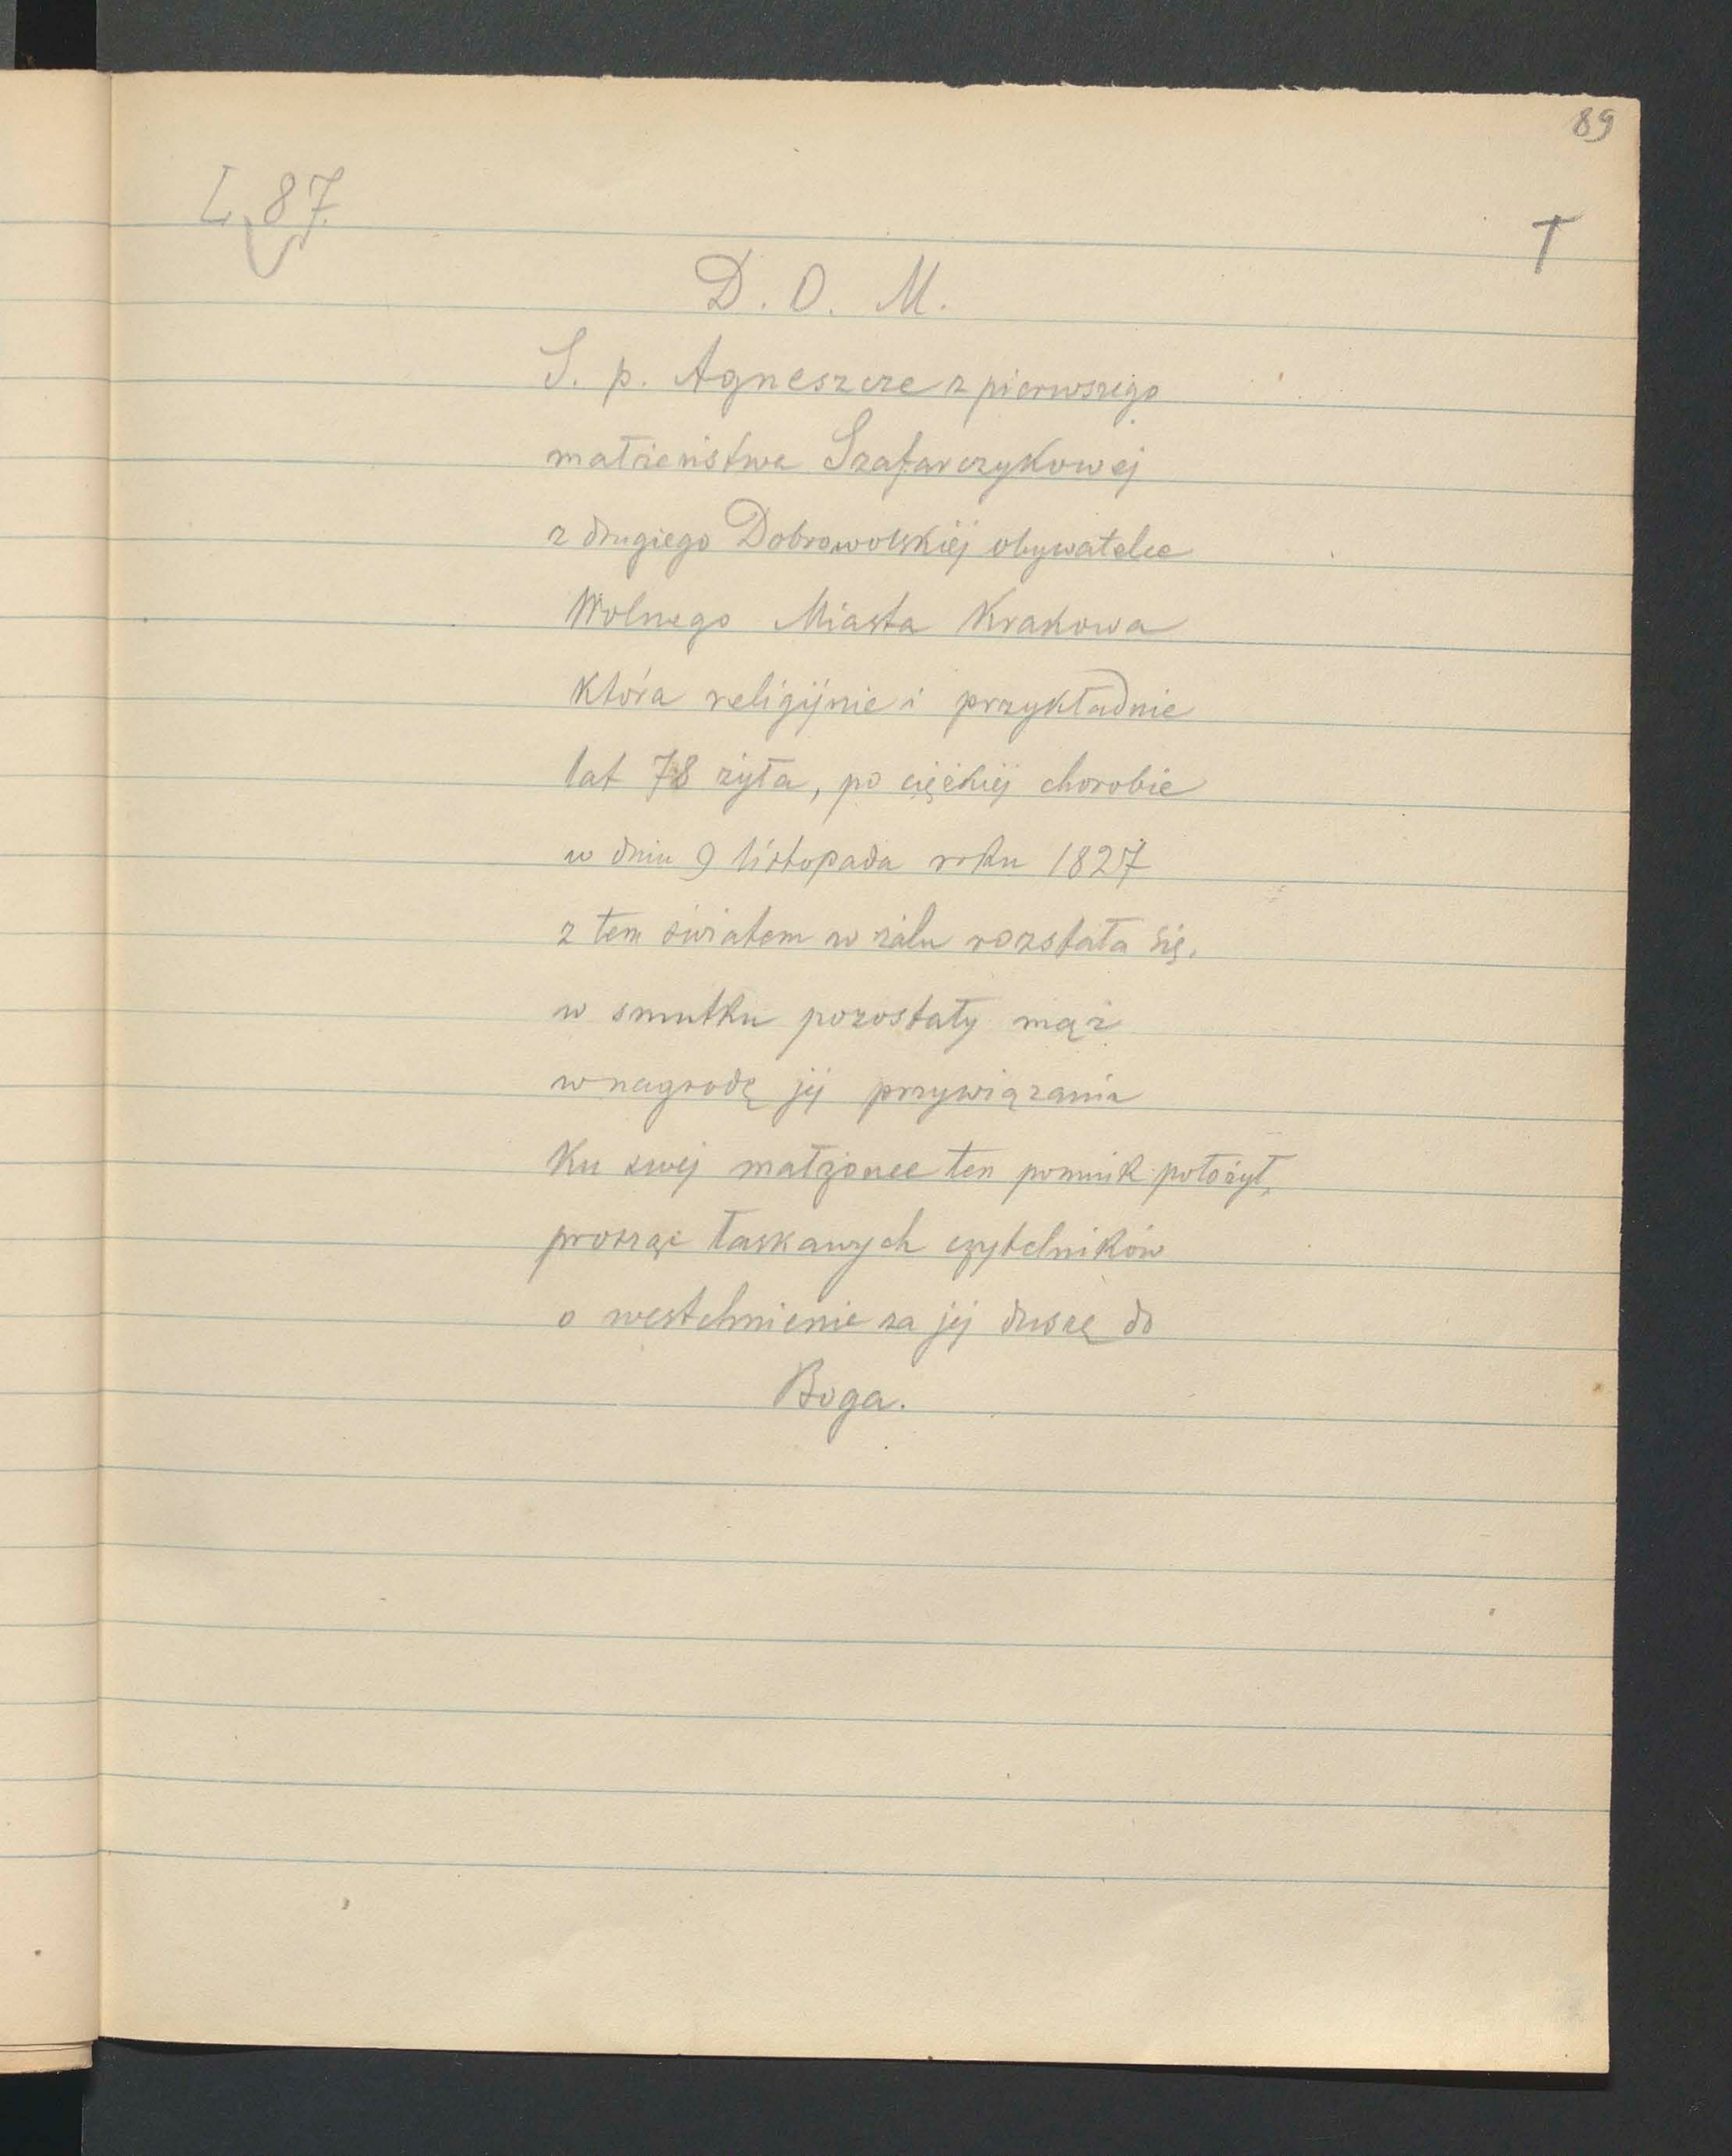 89
L. 87.
T
D. O. M.
S. p. Agneszcze z pierwszego
małżeństwa Szafarczykowej
z drugiego Dobrowolskiéj obywatelce
Wolnego Miasta Krakowa
która religijnie i przykładnie
lat 78 żyła, po ciężkiéj chorobie
w dniu 9 listopada roku 1827
z tem światem w żalu rozstała się.
w smutku pozostały mąż
w nagrodę jej przywiązania
Ku swej małżonce ten pomnik położył,
prosząc łaskawych czytelników
o westchnienie za jej duszę do
Boga.